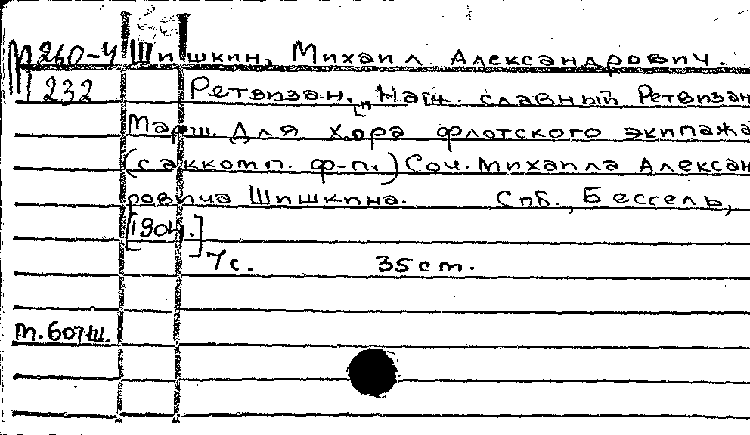 М 260-4 Шишкин, Михаил Александрович.
232 Ретвизан. [Нач. славный Ретвизан
Марш. Для хора флотского экипажа
(с аккомп. ф-п.) Соч. Михаила Алексан
ровича Шишкина. Спб., Бессель,
[1904.]
7 с. 35 cm.
м. 607ш.